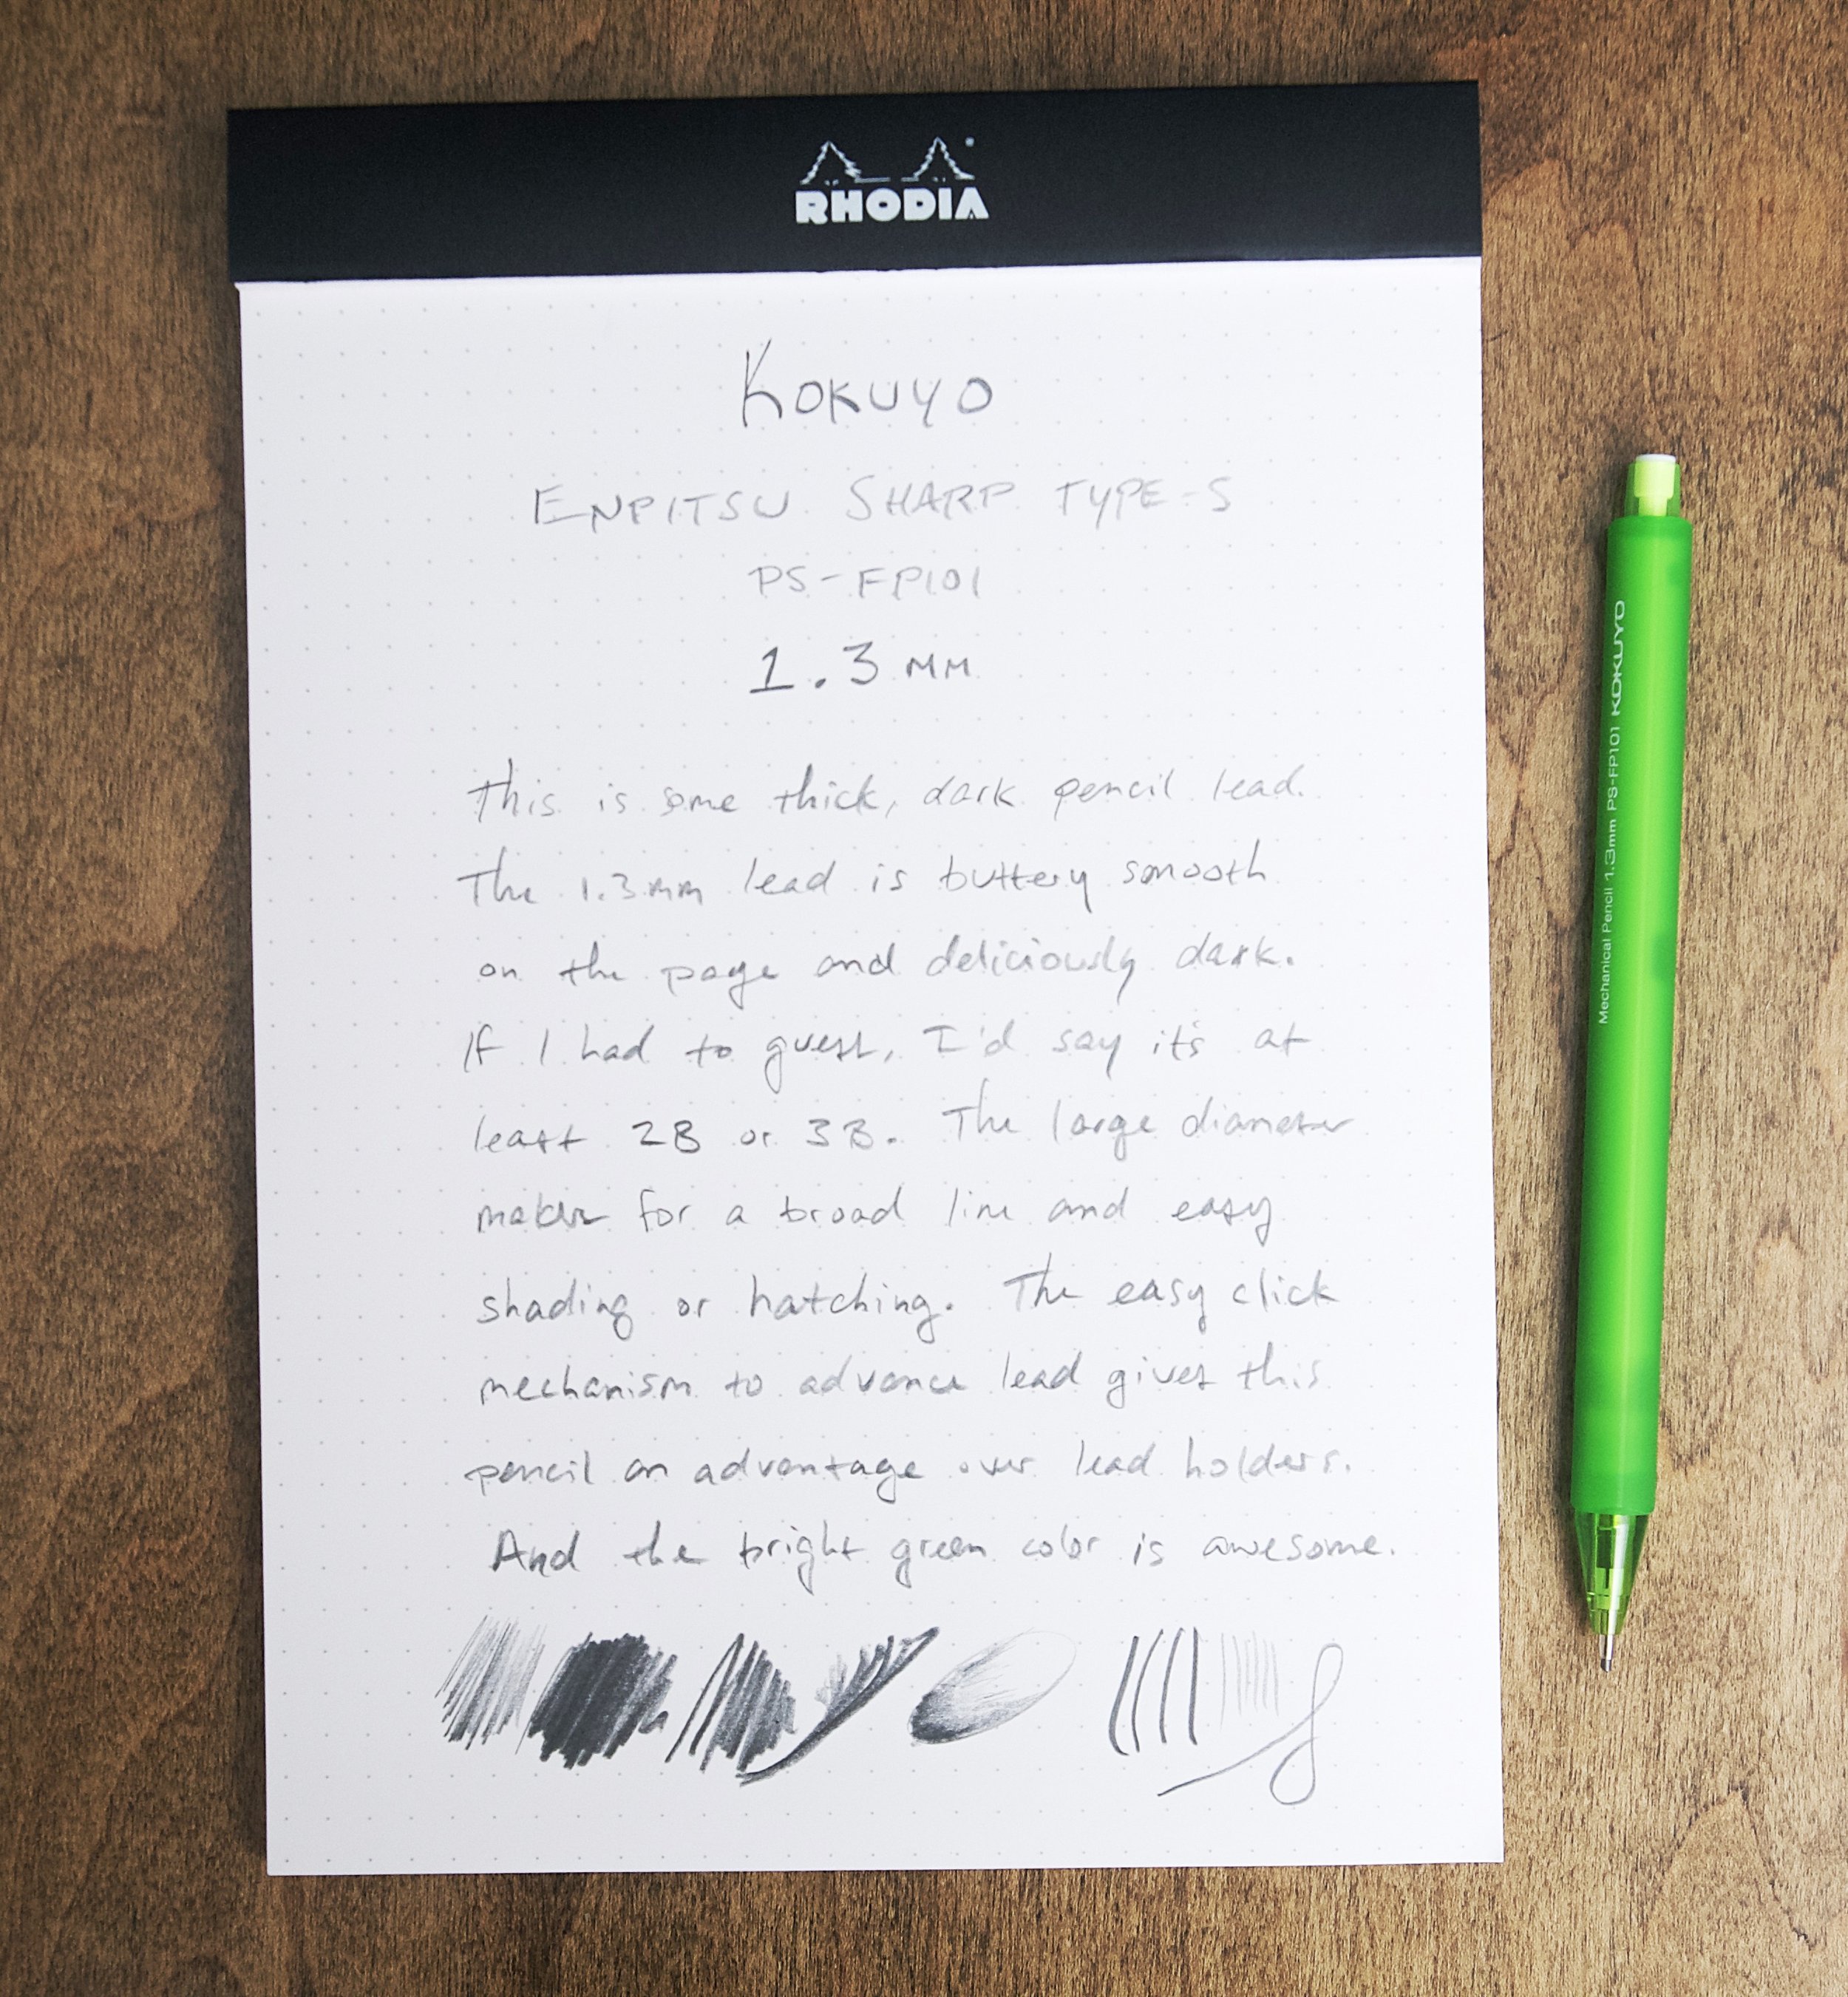 RHODIA
KOKUYO
ENPITSU SHARP TYPE-S
PS-FP101
1.3 MM
This is some thick, dark pencil lead.
The 1.3mm lead is buttery smooth
on the page and deliciously dark.
If I had to guess, I'd say it's at
least 2B or 3B. The large diameter
makes for a broad line and easy
shading or hatching. The easy click
mechanism to advance lead gives this
pencil an advantage over lead holders.
And the bright green color is awesome.
Mechanical Pencil 1.3mm PS-FP101 KOKUYO